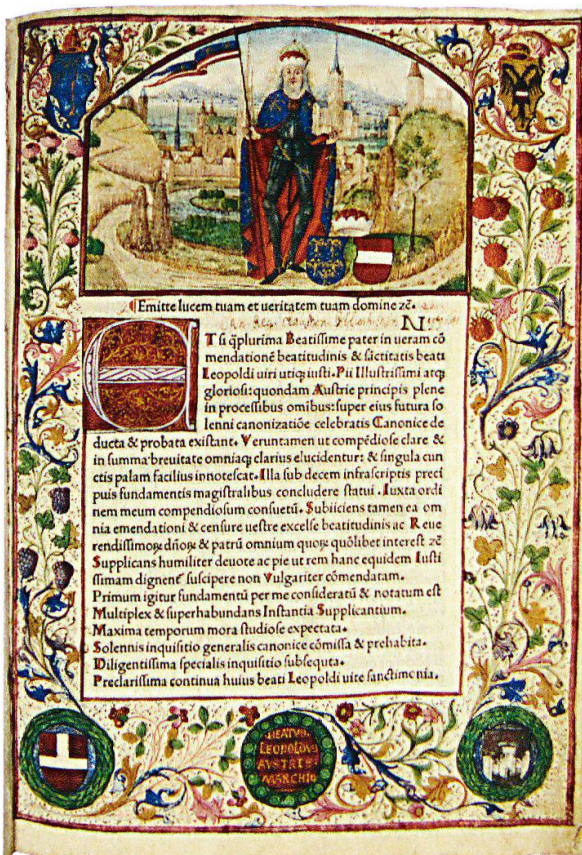 Emitte lucem tuam et ueritatem tuam domine zc̄.
T si q̄plurima Beatissime pater in ueram cō
mendationē beatitudinis & sāctitatis beati
Leopoldi uiri utiq; iusti. Pii Illustrissimi atq;
gloriosi: quondam Austrie principis plene
in processibus omībus: super eius futura so
lenni canonizatiōe celebratis Canonice de
ducta & probata existant. Veruntamen ut compēdiose clare &
in summa breuitate omniaq; clarius elucidentur: & singula cun
ctis palam facilius innotescat. Illa sub decem infrascriptis preci
puis fundamentis magistralibus concludere statui. Iuxta ordi
nem meum compendiosum consuetū. Subiiciens tamen ea om
nia emendationi & censure uestre excelse beatitudinis ac Reue
rendissimoꝝ dn̄oꝝ & patrū omnium quoꝝ quōlibet interest zc̄
Supplicans humiliter deuote ac pie ut rem hanc equidem Iusti
ssimam dignent̄ suscipere non Vulgariter cōmendatam.
Primum igitur fundamentū per me consideratū & notatum est
Multiplex & superhabundans Instantia Supplicantium.
Maxima temporum mora studiose expectata.
Solennis inquisitio generalis canonice cōmissa & prehabita.
Diligentissima specialis inquisitio subsequta.
Preclarissima continua huius beati Leopoldi uite sanctimonia.
BEATVS
LEOPOLDVS
AVSTRIE
MARCHIO